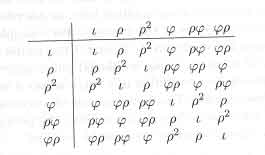 ι ρ ρ² φ ρφ φρ
ι ι ρ ρ² φ ρφ φρ
ρ ρ ρ² ι ρφ φρ φ
ρ² ρ² ι ρ φρ φ ρφ
φ φ φρ ρφ ι ρ² ρ
ρφ ρφ φ φρ ρ ι ρ²
φρ φρ ρφ φ ρ² ρ ι